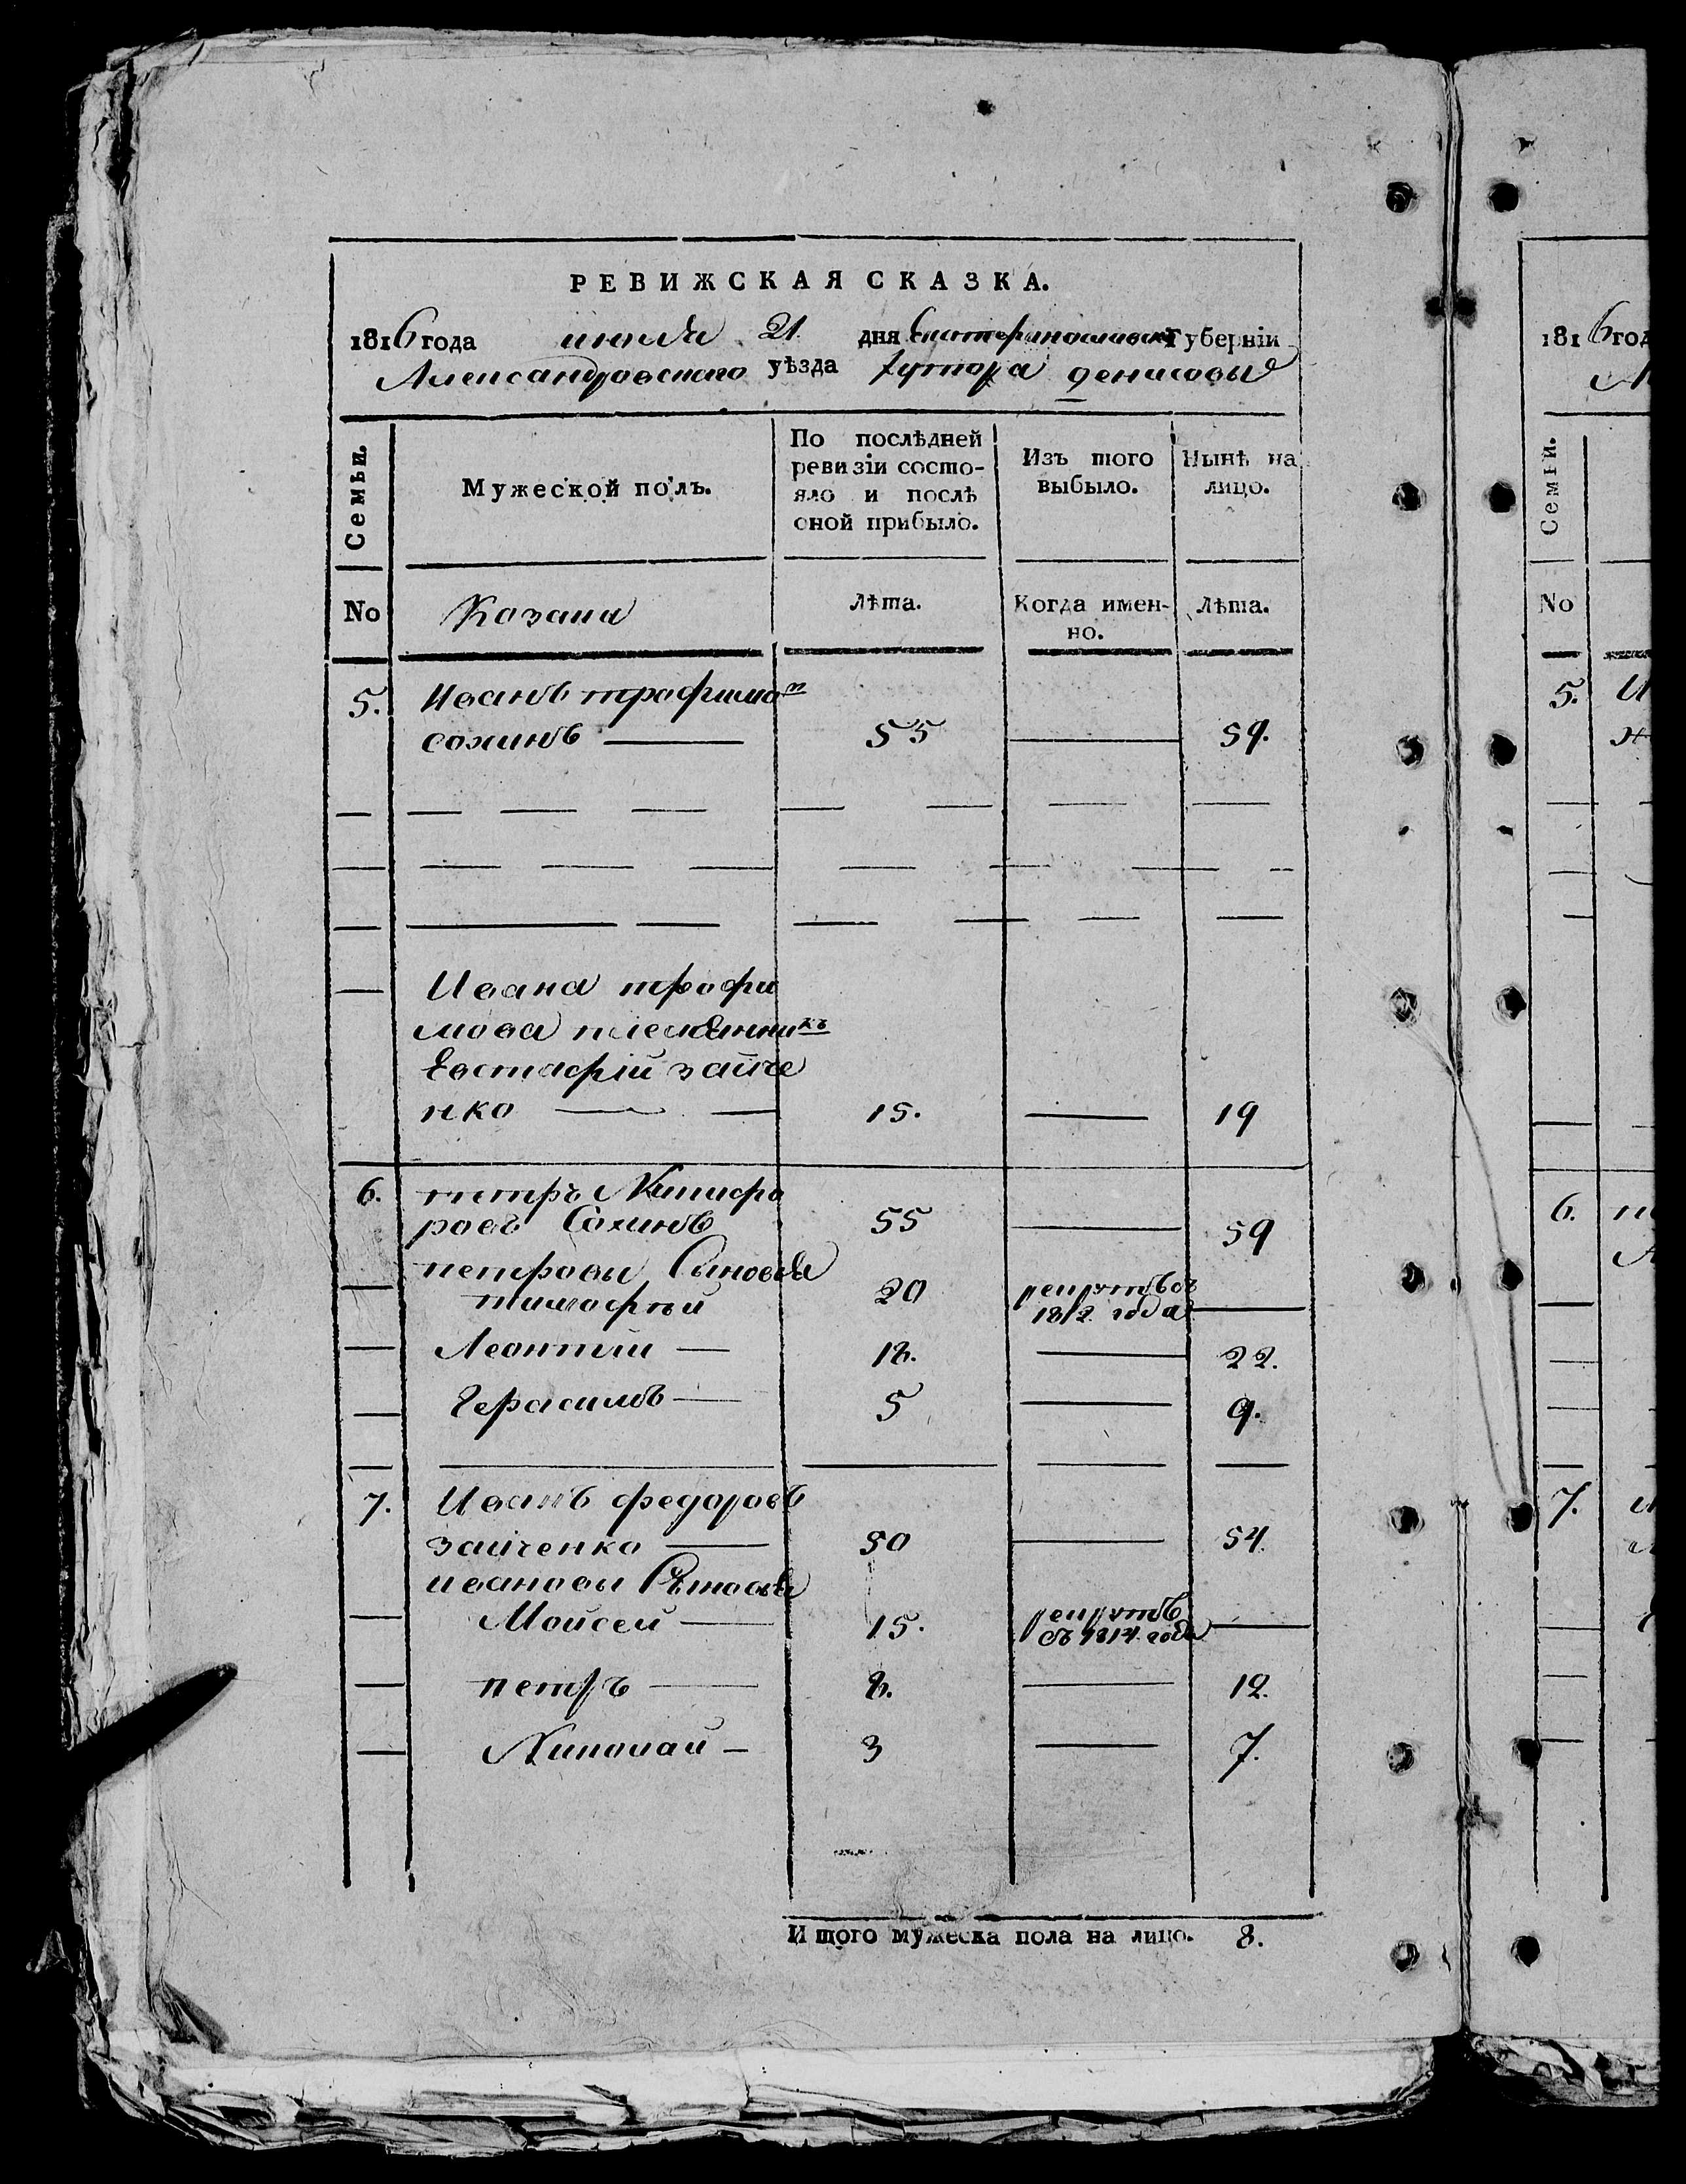 РЕВИЖСКАЯ СКАЗКА.
1816 года июля 21. дня Екатеринославской Губерніи
Александровскаго уѣзда хутора денисовы
Семьи.
Мужеской полъ.
По послѣдней ревизіи состо-
яло и послѣ
оной прибыло.
Изъ того выбыло.
Нынѣ на лицо.
No
Козаки
лѣта.
Когда имен-
но.
лѣта.
5. Иванъ трофимо
сохинъ — 55 — 59.
Ивана трофи
мова племянникъ
Евстафій зайче
нко — 15. — 19
6. петръ Никифо
ровъ Сохинъ 55 — 59
петровы Сыновья
тимофѣй 20 рекрутъ съ
1812 года —
Леонтий — 18. — 22.
Герасимъ — 5 — 9.
7. Иванъ федоровъ
зайченко — 50 — 54.
ивановы Сыновья
Мойсей — 15. рекрутъ
съ 1814 года —
петръ — 8. — 12.
Николай — 3 — 7.
Итого мужеска пола на лицо. 8.
1816 год
Семіи.
No
5. И
6. п
7.